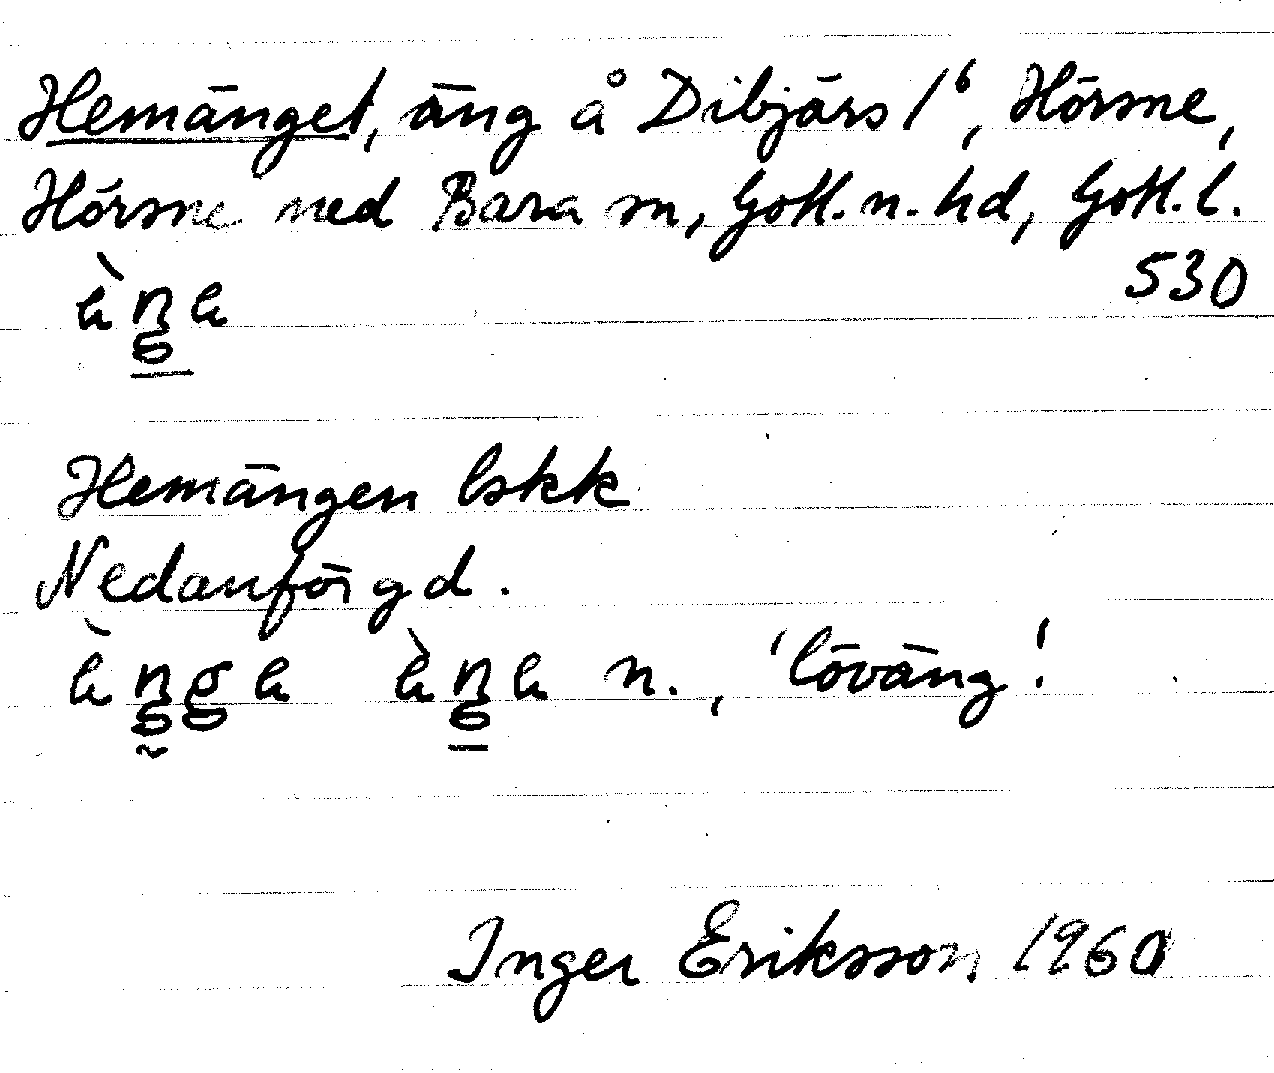 Hemänget, äng å Dibjärs 1⁶, Hörsne,
Hörsne med Bara sn, Gotl. n. hd, Gotl. l.
530
Hemängen lskk
Nedanför gd.
n., 'löväng'.
Inger Eriksson 1960